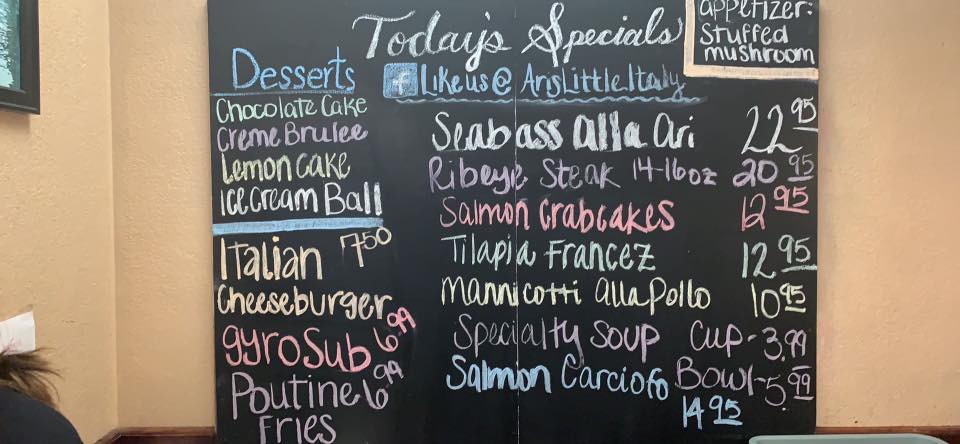 Today's Specials
appetizer:
Stuffed
mushroom
f Like us @ ArisLittleItaly
Desserts
Chocolate Cake
Creme Brulee
Lemon Cake
Ice Cream Ball
Italian 7.50
Cheeseburger
gyro Sub 6.99
Poutine 6.99
Fries
Seabass alla Ari 22.95
Ribeye Steak 14-16oz 20.95
Salmon Crabcakes 12.95
Tilapia Francez 12.95
Mannicotti alla Pollo 10.95
Specialty Soup Cup-3.99
Bowl-5.99
Salmon Carciofo 14.95